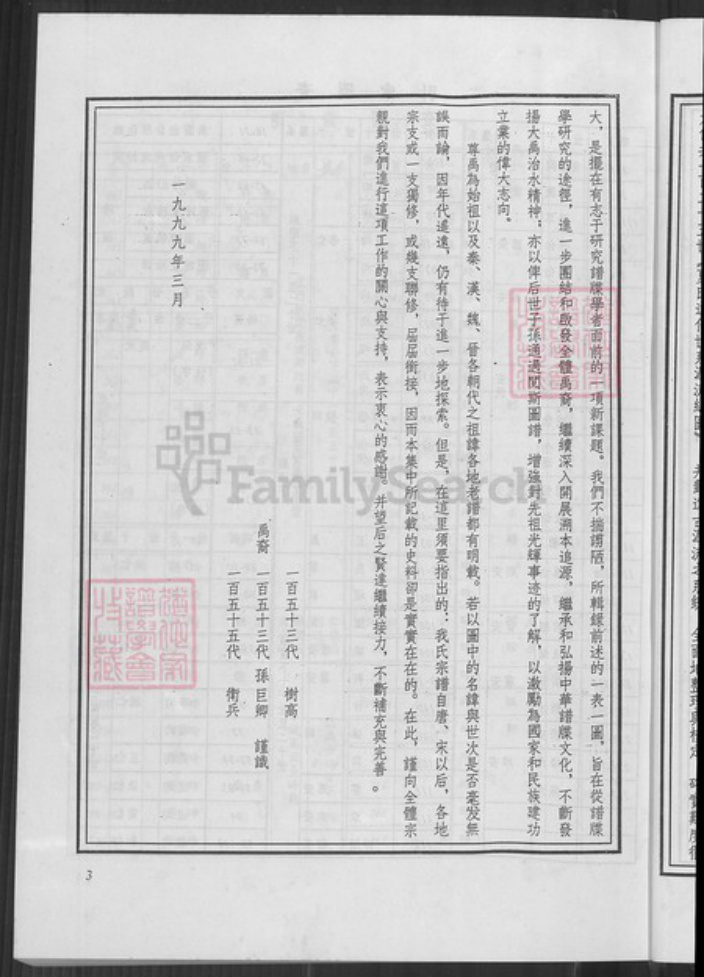 大，是擺在有志于研究譜牒學者面前的一項新課題。我們不揣譾陋，所輯錄前述的一表一圖，旨在從譜牒
學研究的途徑，進一步團結和啟發全體禹裔，繼續深入開展溯本追源，繼承和弘揚中華譜牒文化，不斷發
揚大禹治水精神；亦以俾后世子孫通過閱斯圖譜，增強對先祖光輝事迹的了解，以激勵為國家和民族建功
立業的偉大志向。
尊禹為始祖以及秦、漢、魏、晉各朝代之祖諱各地老譜都有明載。若以圖中的名諱與世次是否毫发無
誤而論，因年代遙遠，仍有待于進一步地探索。但是，在這里須要指出的：我氏宗譜自唐、宋以后，各地
宗支或一支獨修，或幾支聯修，屆屆銜接，因而本集中所記載的史料卻是實實在在的。在此，謹向全體宗
親對我們進行這項工作的關心與支持，表示衷心的感謝。并望后之賢達繼續接力，不斷補充與完善。
一百五十三代 樹高
禹裔 一百五十三代 孫巨卿 謹識
一百五十五代 衛兵
一九九九年三月
3
FamilySearch
譜學會
收藏